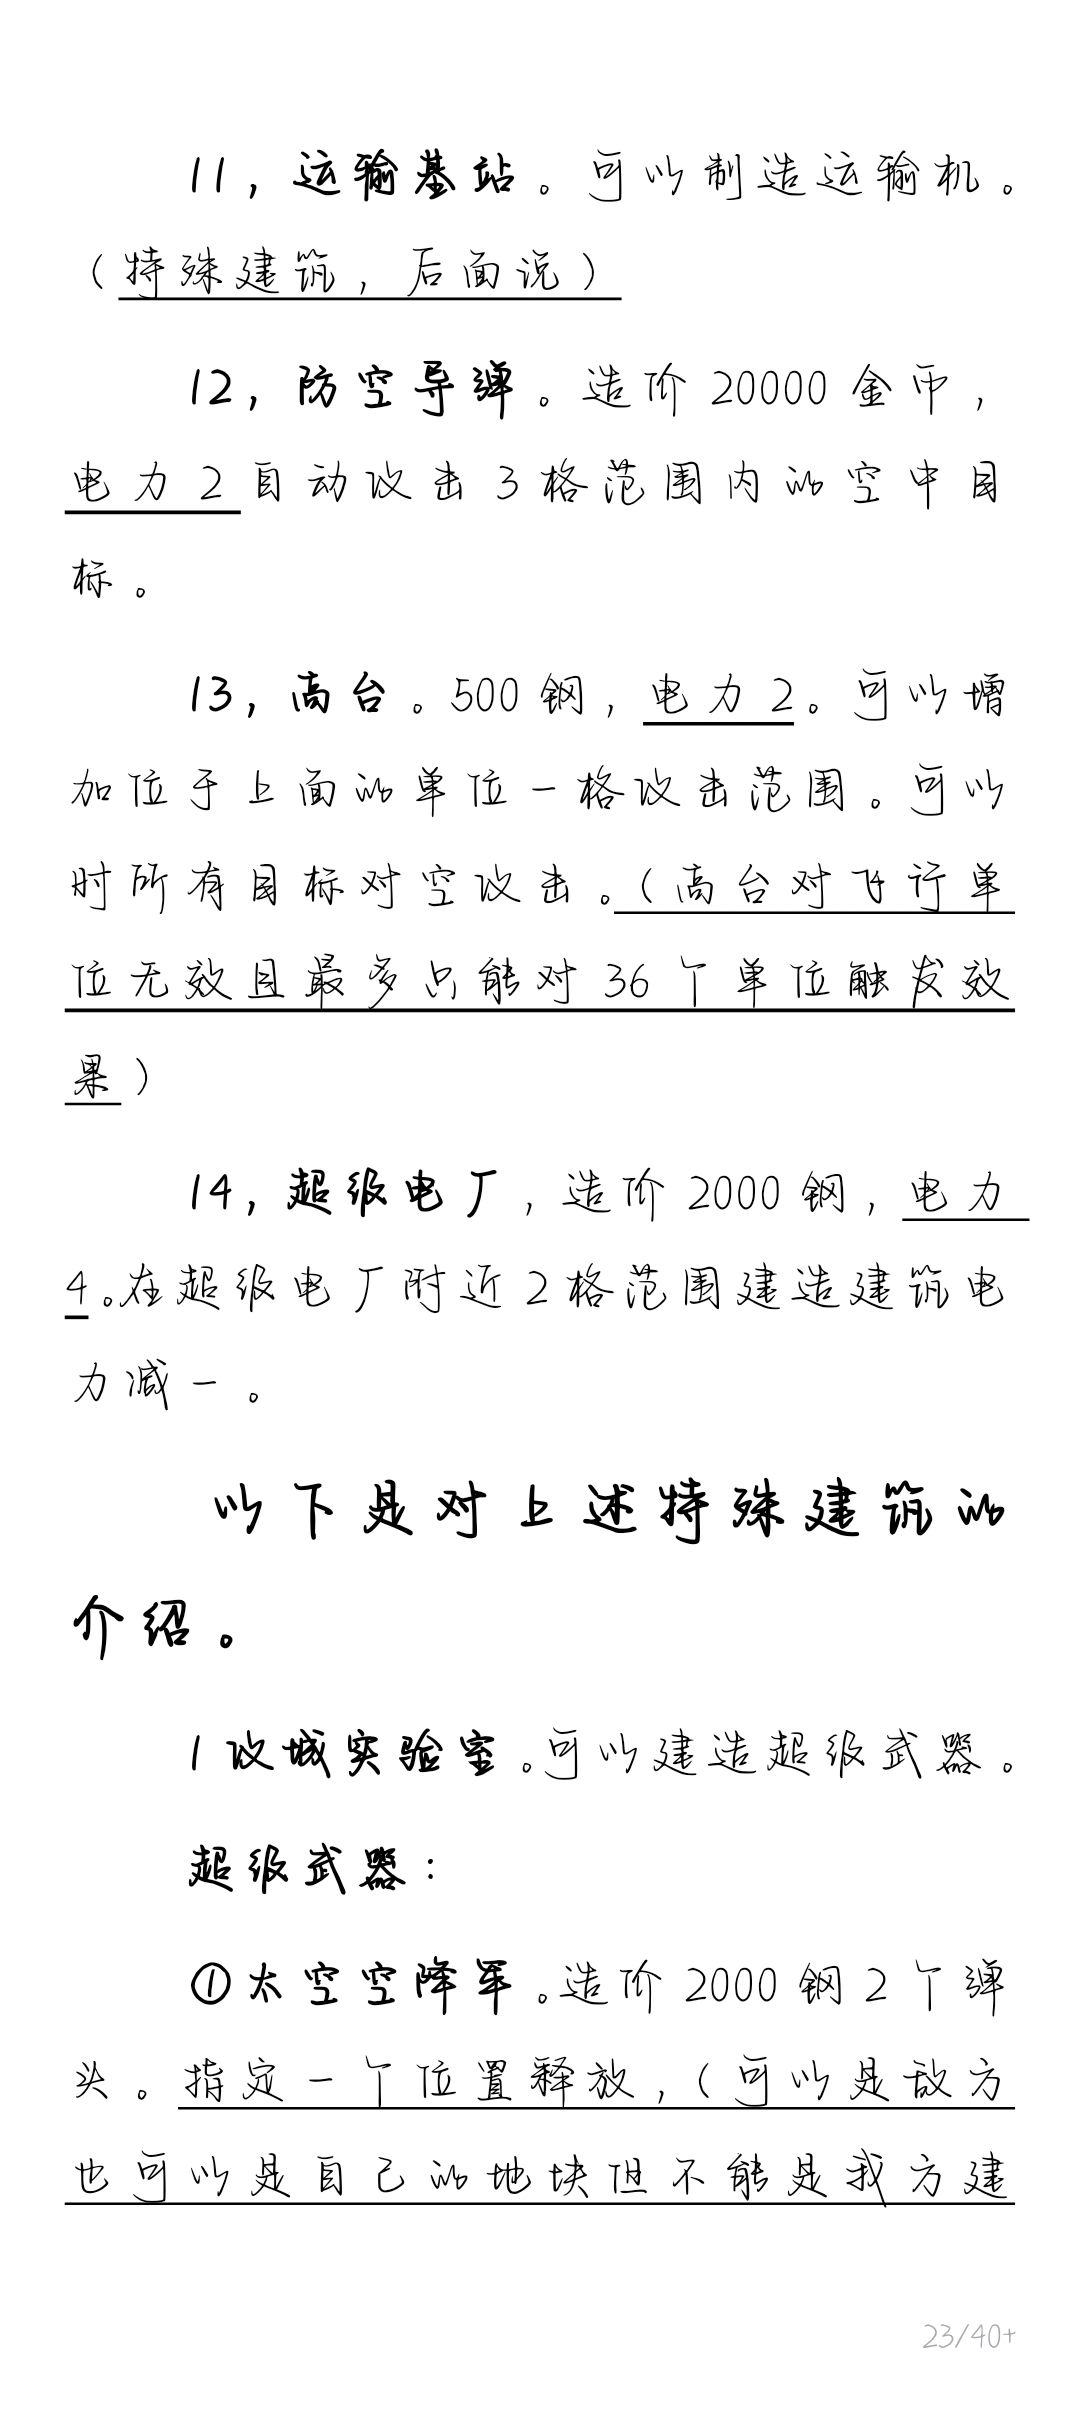 11，运输基站。可以制造运输机。
（特殊建筑，后面说）
12，防空导弹。造价20000金币，
电力2自动攻击3格范围内的空中目
标。
13，高台。500钢，电力2。可以增
加位于上面的单位一格攻击范围。可以
时所有目标对空攻击。（高台对飞行单
位无效且最多只能对36个单位触发效
果）
14，超级电厂，造价2000钢，电力
4。在超级电厂附近2格范围建造建筑电
力减一。
以下是对上述特殊建筑的
介绍。
1攻城实验室。可以建造超级武器。
超级武器：
①太空空降军。造价2000钢2个弹
头。指定一个位置释放，（可以是敌方
也可以是自己的地块但不能是我方建
23/40+